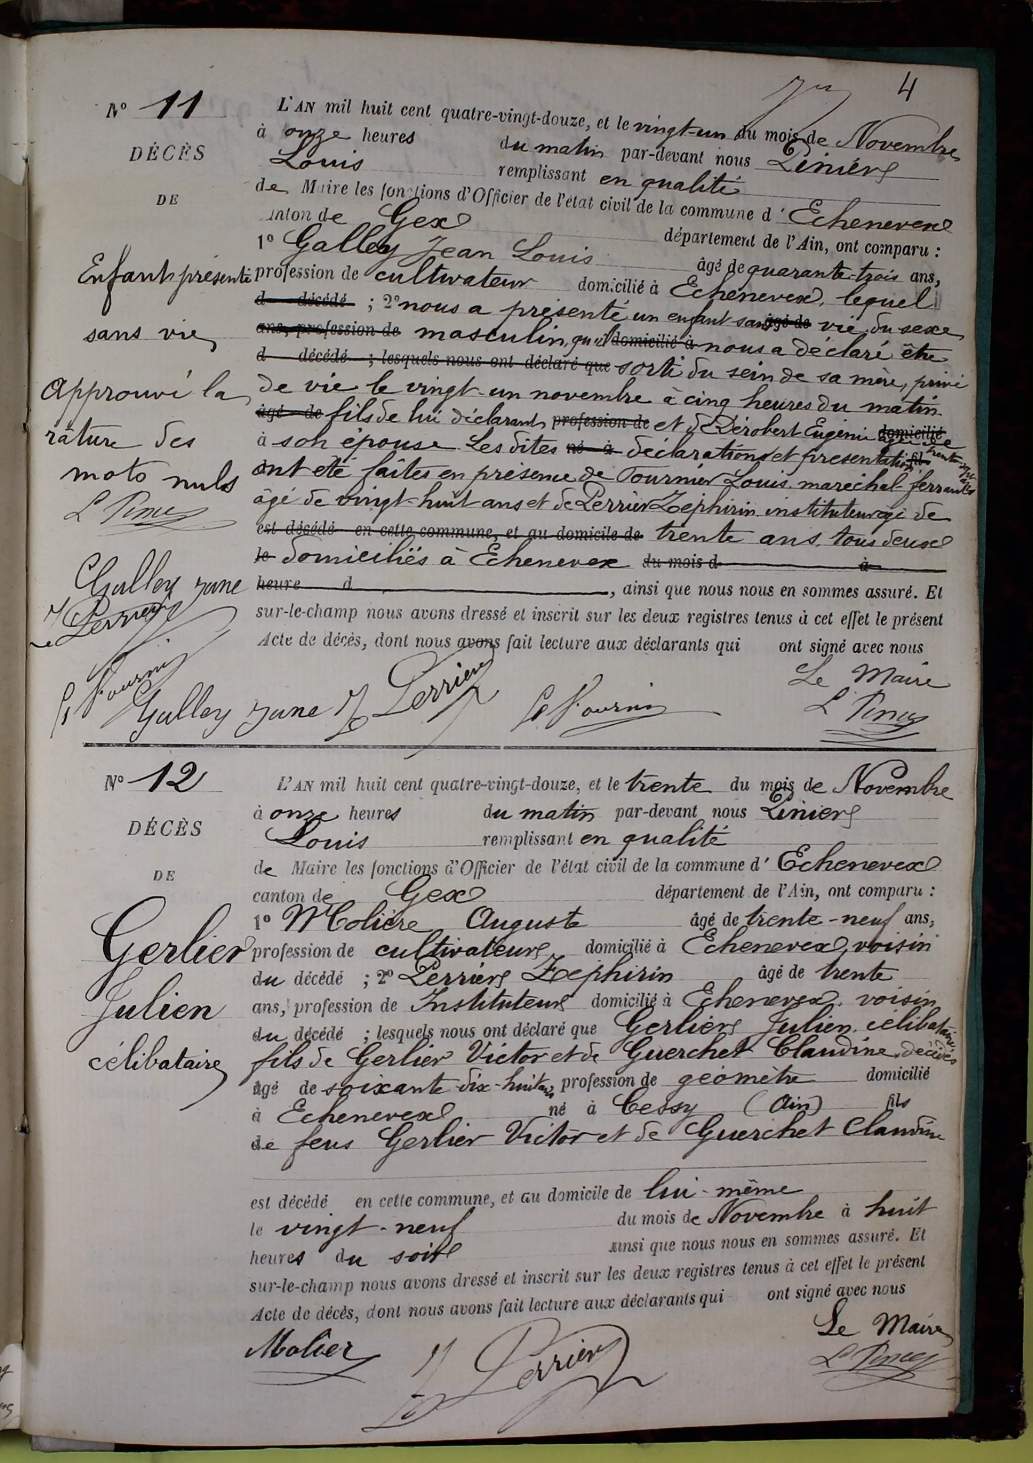 4
N° 11
DÉCÈS
DE
Enfant présenté
sans vie
Approuvé la
rature des
mots nuls
L'AN mil huit cent quatre-vingt-douze, et le vingt-un du mois de Novembre
à onze heures du matin par-devant nous Liniers
Louis remplissant en qualité
de Maire les fonctions d'Officier de l'état civil de la commune d'Echenevex
canton de Gex département de l'Ain, ont comparu :
1° Galley Jean Louis âgé de quarante-trois ans,
profession de cultivateur domicilié à Echenevex, lequel
d décédé ; 2° nous a présenté un enfant sans âgé de vie du sexe
ans, profession de masculin, qu'il domicilié à nous a déclaré être
d décédé ; lesquels nous ont déclaré que sorti du sein de sa mère, privé
de vie le vingt-un novembre à cinq heures du matin
âgé de fils de lui déclarant profession de et de Dérobert Eugénie domicilié
à son épouse Les dites né à déclarations et présentation fil
ont été faites en présence de Fournier Louis maréchal-ferrant
âgé de vingt-huit ans et de Perrier Zephirin instituteur âgé de
est décédé en cette commune, et au domicile de trente ans, tous deux
le domiciliés à Echenevex du mois d à
heure d , ainsi que nous nous en sommes assuré. Et
sur-le-champ nous avons dressé et inscrit sur les deux registres tenus à cet effet le présent
Acte de décès, dont nous avons fait lecture aux déclarants qui ont signé avec nous
Le Maire
Galley
Perrier
Fournier
Galley Perrier Fournier
N° 12
DÉCÈS
DE
Gerlier
Julien
célibataire
L'AN mil huit cent quatre-vingt-douze, et le trente du mois de Novembre
à onze heures du matin par-devant nous Liniers
Louis remplissant en qualité
de Maire les fonctions d'Officier de l'état civil de la commune d'Echenevex
canton de Gex département de l'Ain, ont comparu :
1° Molière Auguste âgé de trente-neuf ans,
profession de cultivateur domicilié à Echenevex, voisin
du décédé ; 2° Perrier Zephirin âgé de trente
ans, profession de Instituteur domicilié à Echenevex, voisin
du décédé ; lesquels nous ont déclaré que Gerlier Julien, célibataire
fils de Gerlier Victor et de Guerchet Claudine, décédés
âgé de soixante-dix-huit ans profession de géomètre domicilié
à Echenevex né à Cessy (Ain) fils
de feus Gerlier Victor et de Guerchet Claudine
est décédé en cette commune, et au domicile de lui-même
le vingt-neuf du mois de Novembre à huit
heures du soir ainsi que nous nous en sommes assuré. Et
sur-le-champ nous avons dressé et inscrit sur les deux registres tenus à cet effet le présent
Acte de décès, dont nous avons fait lecture aux déclarants qui ont signé avec nous
Le Maire
Molier Perrier